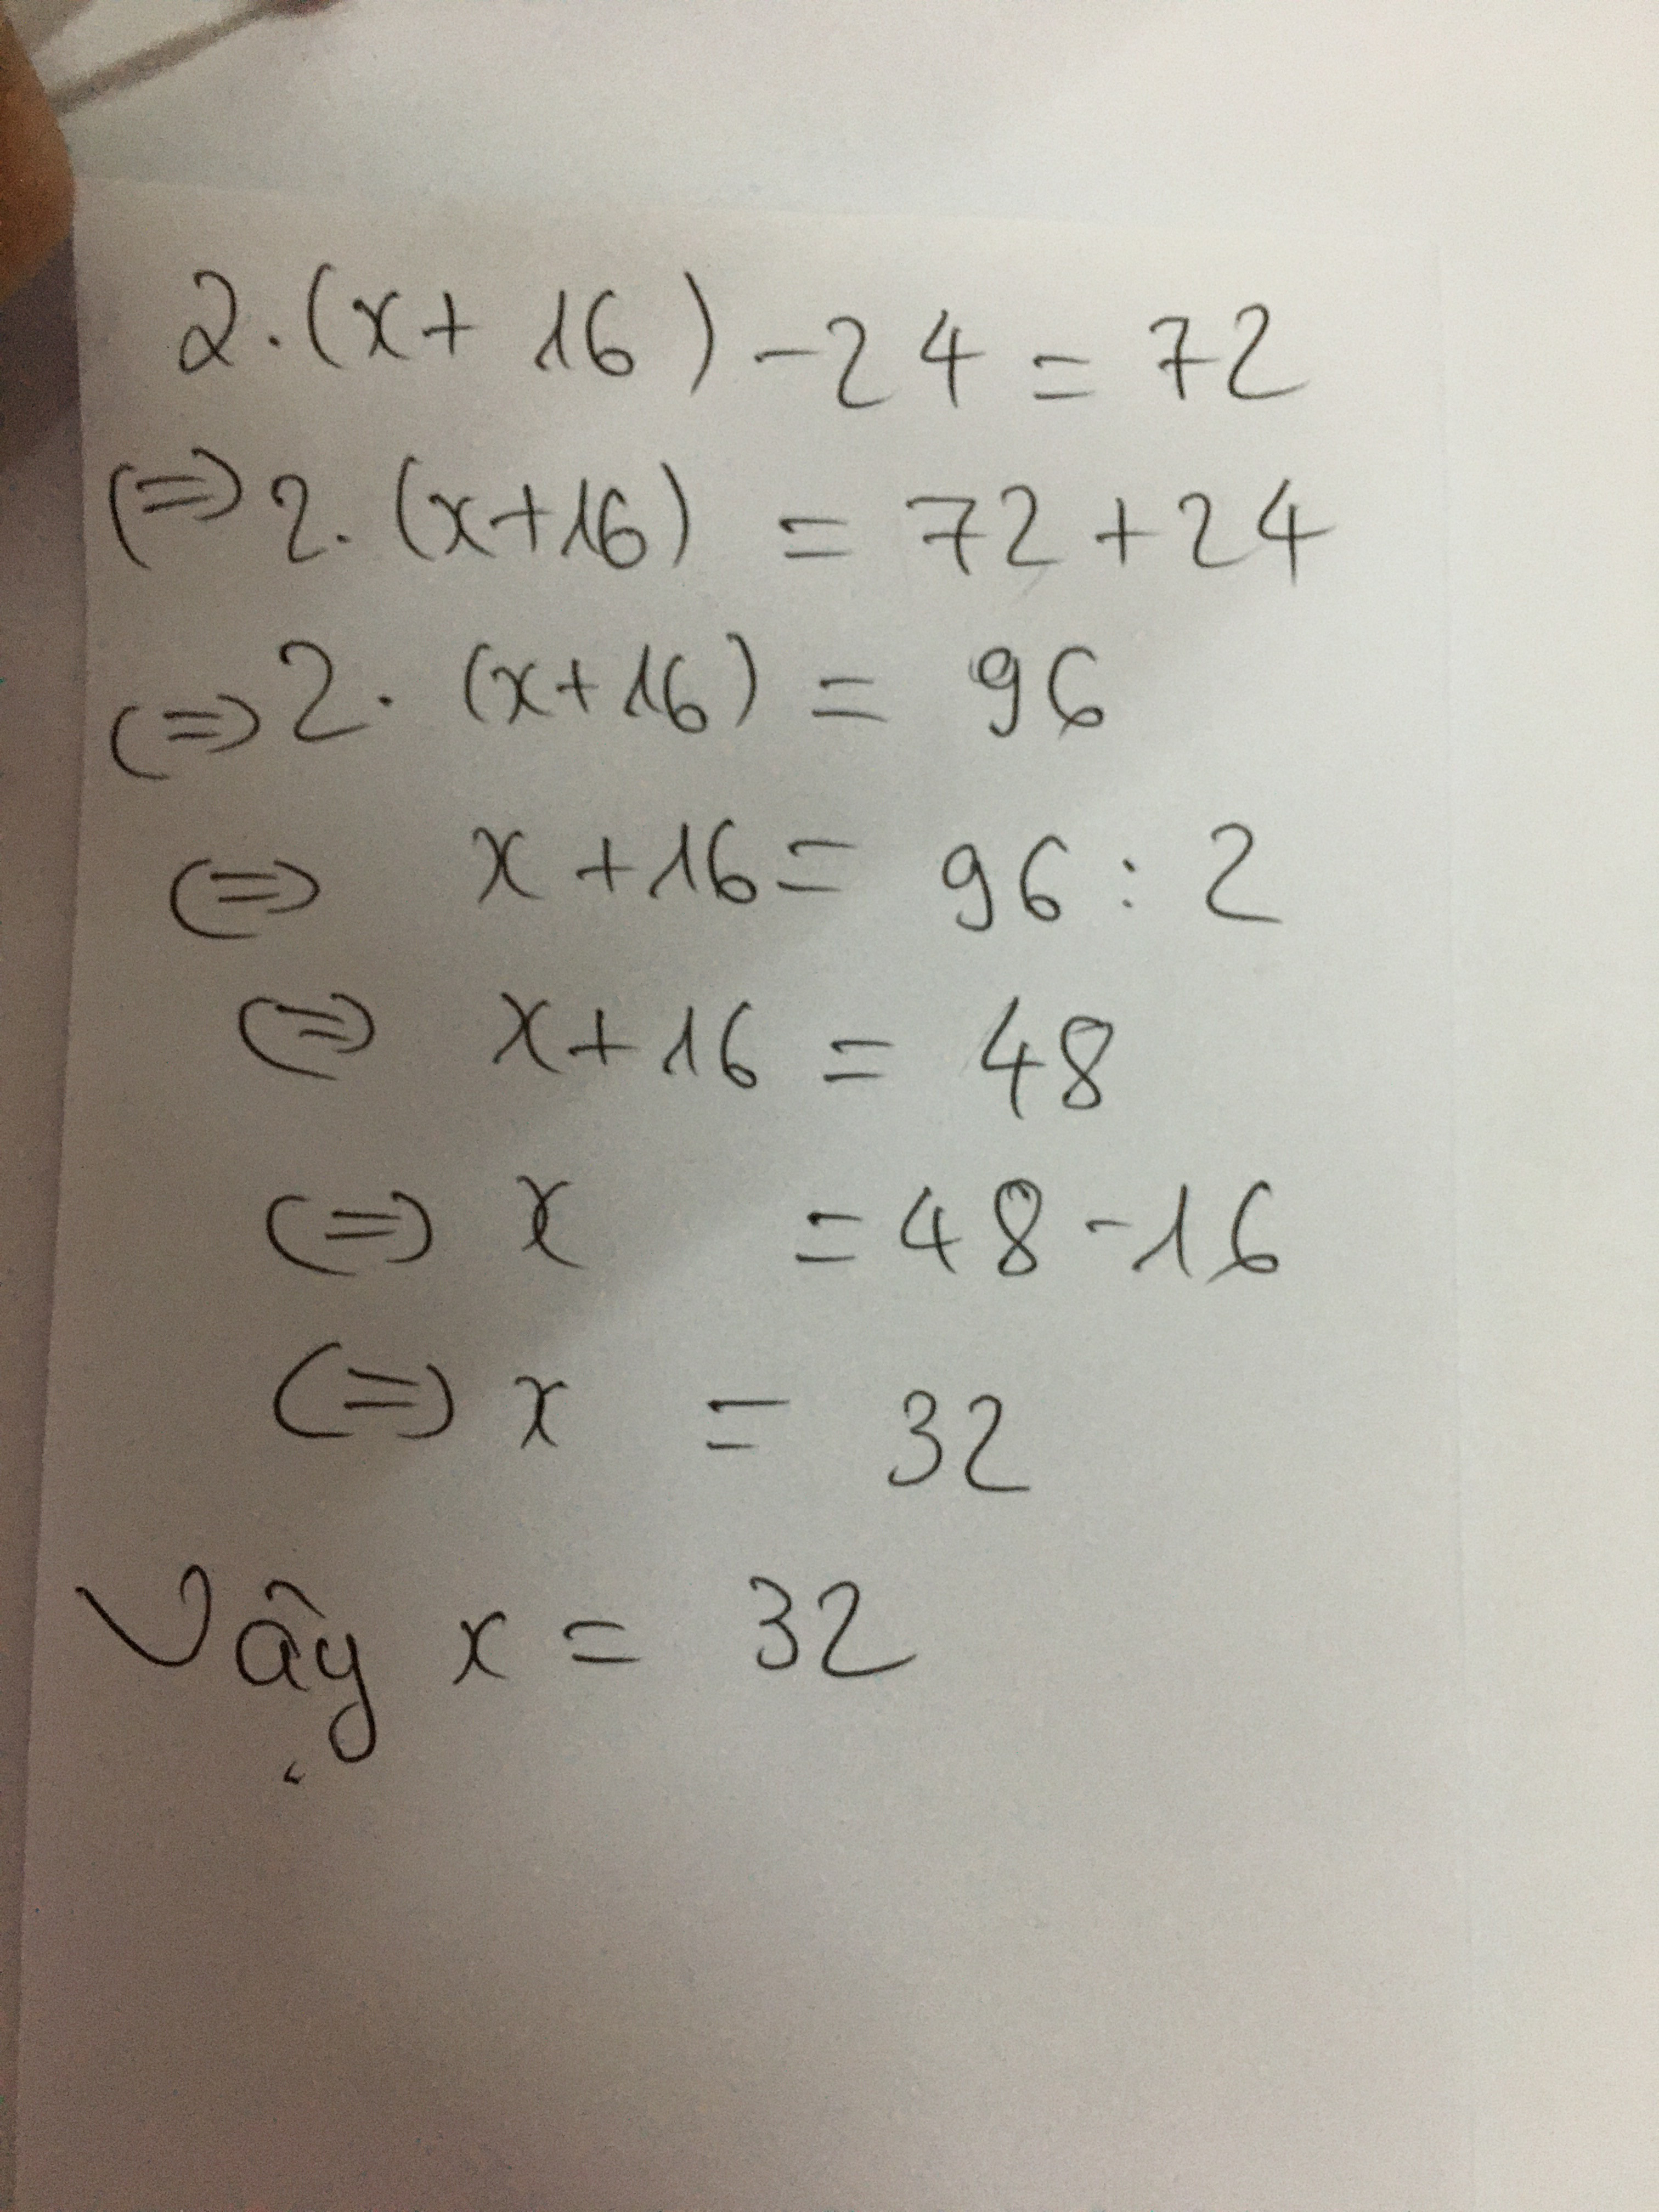 2.(x+ 16) - 24 = 72
(=) 2. (x+16) = 72 + 24
(=) 2. (x+16) = 96
(=) x + 16 = 96 : 2
(=) x + 16 = 48
(=) x = 48 - 16
(=) x = 32
Vậy x = 32